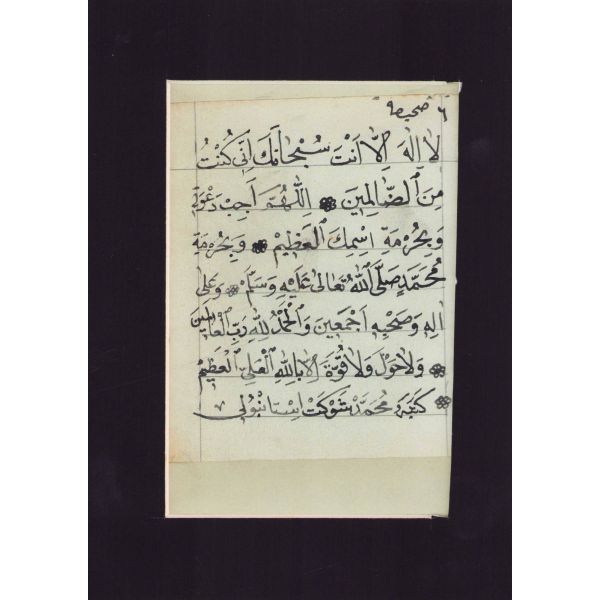 ٦ صحيفه
لَا اِلٰهَ اِلَّا اَنْتَ سُبْحَانَكَ اِنِّى كُنْتُ
مِنَ الظَّالِمِينَ اَللّٰهُمَّ اَجِبْ دَعْوَتِى
وَبِحُرْمَةِ اِسْمِكَ الْعَظِيمْ وَبِحُرْمَةِ
مُحَمَّدٍ صَلَّى اللّٰهُ تَعَالٰى عَلَيْهِ وَسَلَّمْ وَعَلٰى
اٰلِهِ وَصَحْبِهِ اَجْمَعِينَ وَالْحَمْدُ لِلّٰهِ رَبِّ الْعَالَمِينَ
وَلَا حَوْلَ وَلَا قُوَّةَ اِلَّا بِاللّٰهِ الْعَلِىِّ الْعَظِيمْ
كَتَبَهُ مُحَمَّدْ شَوْكَتْ اِسْتَانْبُولِى